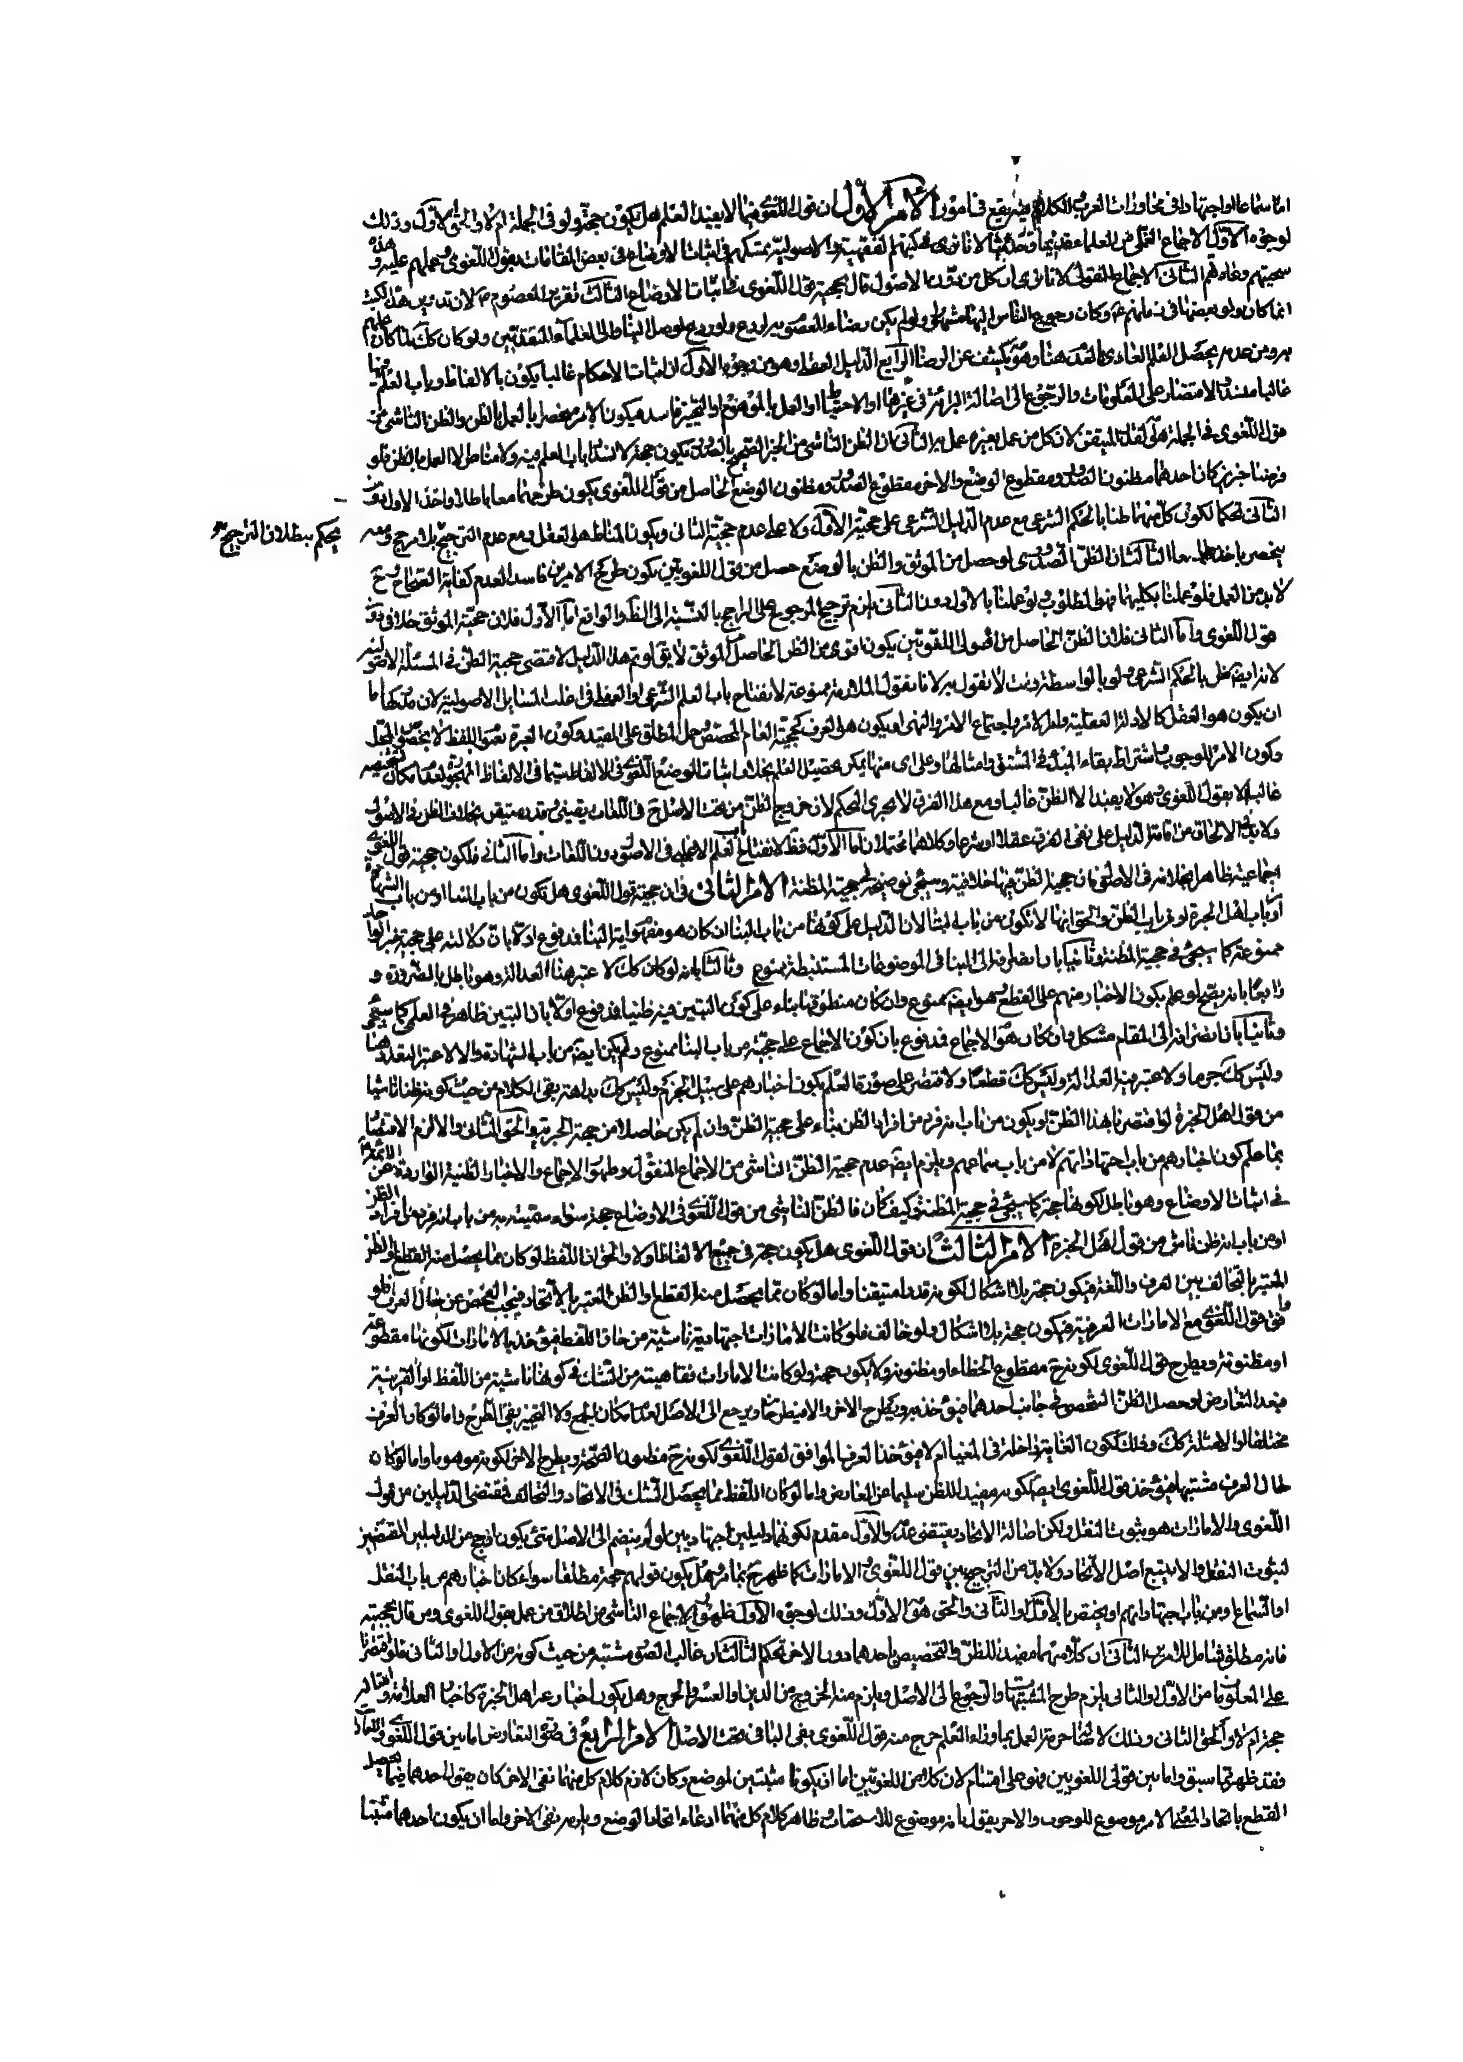 اما سماعا او اجتهادا فى محاورات العرب الكلام فيه يقع فى امور الامر الاول ان قول اللغوى فيما لا يفيد العلم هل يكون حجة ولو فى الجملة ام لا والحق الاول وذلك
لوجوه الاول الاجماع العملى من العلماء قديما وحديثا لانا نرى فى كتبهم الفقهية والاصولية تمسكهم فى اثبات الاوضاع فى بعض المقامات بقول اللغوى وعملهم عليه وهذه
سجيتهم الثانى الاجماع المنقول لانا نرى ان كل من دون الاصول قال بحجية قول اللغوى فى اثبات الاوضاع الثالث تقرير المعصوم لان تدوين هذه الكتب
انما كان ولو بعضها فى زمانهم وكان رجوع الناس اليها ولو لم يكن رضاء للمعصوم به لردع ولو ردع لوصل الينا والى العلماء المتقدمين ولو كان كك لما كان عملهم
به ومن عدمه يحصل العلم العادى بالعدم هنا وهو يكشف عن الرضا الرابع الدليل العقلى وهو من وجوه الاول ان اثبات الاحكام غالبا يكون بالالفاظ وباب العلم فيها
غالبا منسد والاقتصار على المعلومات والرجوع الى اصالة البرائة فى غيرها او الاحتياط او العمل بالموهوم او التخيير فاسد فيكون الامر منحصرا بالعمل بالظن والظن الناشى من
قول اللغوى فى الجملة هو القدر المتيقن لان كل من عمل بغيره عمل به الثانى ان الظن الناشى من الخبر الصحيح بالصدور يكون حجة لانسداد باب العلم فيه ولا مناص الا العمل بالظن فلو
فرضنا خبرين كان احدهما مظنون الصدور ومقطوع الوضع والاخر مقطوع الصدور ومظنون الوضع الحاصل من قول اللغوى يكون طرحهما معا باطلا واخذ الاول دون
الثانى تحكما لكون كل منهما ظنا بالحكم الشرعى مع عدم الدليل الشرعى على حجية الاول ولا على عدم حجية الثانى ويكون المناط هو العقل ومع عدم الترجيح بلا مرجح ومعه
يحكم ببطلان الترجيح
ينحصر باخذهما معا الثالث ان الظن الصدورى لو حصل من الموثق والظن بالوضع حصل من قول اللغويين يكون طرح الامرين فاسدا لعدم كفاية الصحاح فح
لا بد من العمل فلو عملنا بكليهما فهو المطلوب ولو عملنا بالاول دون الثانى يلزم ترجيح المرجوح على الراجح بالنسبة الى الظن والواقع اما الاول فلان حجية الموثق خلافى دون
قول اللغوى واما الثانى فلان الظن الحاصل من قول اللغويين يكون اقوى من الظن الحاصل من الموثق لا يقال لو تم هذا الدليل لاقتضى حجية الظن فى المسئلة الاصولية
لانه ايضا ظن بالحكم الشرعى ولو بالواسطة وانت لا تقول به لانا نقول الملازمة ممنوعة لانفتاح باب العلم الشرعى او العقلى فى اغلب المسايل الاصولية لان مدركها اما
ان يكون هو العقل كالادلة العقلية واجتماع الامر والنهى او يكون هو العرف كحجية العام المخصص وحمل المطلق على المقيد وكون العبرة بعموم اللفظ لا بخصوص المحل
وكون الامر للوجوب واشتراط بقاء المبدء فى المشتق وامثالها وعلى اى منهما يمكن تحصيل العلم بخلاف اثبات الوضع اللغوى فى الالفاظ سيما فى الالفاظ المهجورة لعدم امكان تحصيله
غالبا الا بقول اللغوى وهو لا يفيد الا الظن غالبا ومع هذا الفرق لا يجرى التحكم لان خروج الظن من تحت الاصل فى اللغات يقينى وقدر متيقن بخلاف الظن فى الاصول
ولا بد فى الالحاق من اقامة الدليل على نفى الفرق عقلا او شرعا وكلاهما محتملان اما الاول فظ لانفتاح باب العلم فى الاصول دون اللغات واما الثانى فلكون حجية قول اللغوى
اجماعية ظاهرا بخلافه فى الاصول فان حجية الظن فيها خلافية وسيجئ توضيحه فى حجية المظنة الامر الثانى فى ان حجية قول اللغوى هل تكون من باب البناء او من باب الشهادة
او باب اهل الخبرة او من باب الظن والحق انها لا تكون من باب البناء لان الدليل على كونها من باب البناء ان كان هو مفهوم اية البناء فمدفوع اولا بان دلالته على حجية خبر الواحد
ممنوعة كما سيجئ فى حجية المظنة وثانيا بان انصرافه الى البناء فى الموضوعات المستنبطة ممنوع وثالثا بانه لو كان كك لاعتبر هنا العدالة وهو باطل بالضرورة و
رابعا بانه يصح لو علم بكون الاخبار منهم على القطع وهو ايضا ممنوع وان كان منطوقها بناء على كون التبين فيه ظنيا فمدفوع اولا بان التبين ظاهر فى العلمى كما سيجئ
وثانيا بان انصرافه الى المقام مشكل وان كان هو الاجماع فمدفوع بان كون الاجماع على حجيته من باب البناء ممنوع ولم يكن ايضا من باب الشهادة والا لاعتبر التعدد هنا
وليس كك جزما ولاعتبر فيه العدالة وليس كك قطعا ولاقتصر على صورة العلم بكون اخبارهم على سبيل الجزم وليس كك بداهة بقى الكلام من حيث كونه ظنا ناشيا
من قول اهل الخبرة لو اقتصرنا بهذا الظن او يكون من باب انه فرد من افراد الظن بناء على حجية الظن وان لم يكن حاصلا من جهة الخبرية والحق الثانى والا لزم الاقتصار
بما علم كون اخبارهم من باب اجتهاداتهم لا من باب سماعهم ويلزم ايضا عدم حجية الظن الناشى من الاجماع المنقول وظهور الاجماع والاخبار الظنية الواردة عن الائمة
فى اثبات الاوضاع وهو باطل لكونها حجة كما سيجئ فى حجية المظنة وكيف كان فالظن الناشى من قول اللغوى فى الاوضاع حجة سواء من باب انه فرد من افراد الظن
او من باب انه ظن ناش من قول اهل الخبرة الامر الثالث ان قول اللغوى هل يكون حجة فى جميع الالفاظ اولا والحق ان اللفظ لو كان مما يحصل منه القطع او الظن
المعتبر بالتخالف بين العرف واللغة فيكون حجة بلا اشكال لكونه قدرا متيقنا واما لو كان مما يحصل منه القطع او الظن المعتبر بالاتحاد فيجب الفحص عن حال العرف فلو
وافق قول اللغوى مع الامارات العرفية فيكون حجة بلا اشكال ولو خالف فلو كانت الامارات اجتهادية ناشية من حاق اللفظ فيؤخذ بالامارات لكونها مقطوعة
او مظنونة ويطرح قول اللغوى لكونه ح مقطوع الخطاء او مظنونه ولا يكون حجة ولو كانت الامارات فقاهية من الشك فى كونها ناشية من اللفظ او القرينة
فبعد التعارض لو حصل الظن الشخصى فى جانب احدهما فيؤخذ به ويطرح الاخر والا فيطرحان ويرجع الى الاصل لعدم امكان الجمع ولا التخيير بقى الطرح واما لو كان العرف
مختلفا والامثلة كك وذلك لكون الغاية داخلة فى المغيا ام لا فيؤخذ العرف الموافق لقول اللغوى لكونه ح مظنون الصحة ويطرح الاخر لكونه موهوما واما لو كان
حال العرف مشتبها فيؤخذ بقول اللغوى ايضا لكونه مفيد الظن سليما عن المعارض واما لو كان اللفظ مما يحصل الشك فى الاتحاد والتخالف فمقتضى الدليلين من قول
اللغوى والامارات هو ثبوت النقل ولكن اصالة الاتحاد يقتضى عدمه والاول مقدم لكونهما دليلين اجتهاديين لو لم ينضم الى الاصل شئ يكون ارجح من الدليلين المقتضيين
لثبوت النقل والا يتبع اصل الاتحاد ولا بد من الترجيح بين قول اللغوى والامارات كما ظهر ح بما مر وهل يكون قولهم حجة مطلقا سواء كان اخبارهم من باب النقل
او السماع او من باب اجتهاداتهم او يختص بالاول او الثانى والحق هو الاول وذلك لوجوه الاول ظهور الاجماع الناشى من اطلاق من عمل بقول اللغوى ومن قال بحجيته
فانه مطلق شامل للامرين الثانى ان كلا منهما مفيد للظن والتخصيص باحدهما دون الاخر تحكم الثالث ان غالب الصور مشتبه من حيث كونه من الاول او الثانى فلو اقتصرنا
على المعلوم من الاول او الثانى يلزم طرح المشتبهات والرجوع الى الاصل ويلزم منه الخروج من الدين او العسر والحرج وهل يكون اخبار غير اهل الخبرة كاخبار العلامة وامثاله
حجة ام لا والحق الثانى وذلك لاصالة حرمة العمل بما وراء العلم خرج منه قول اللغوى بقى الباقى تحت الاصل الامر الرابع فى صور التعارض اما بين قول اللغوى
فقد ظهر مما سبق واما بين قولى اللغويين فهو على اقسام لان كلام اللغويين اما ان يكونا مثبتين لموضع وكان لازم كلام كل منهما نفى الاخر كان يقول احدهما فيما يحصل
القطع باتحاد المعنى الامر موضوع للوجوب والاخر يقول بانه موضوع للاستحباب ظاهر كلام كل منهما ادعاء اتحاد الوضع ويلزمه نفى الاخر واما ان يكون احدهما مثبتا